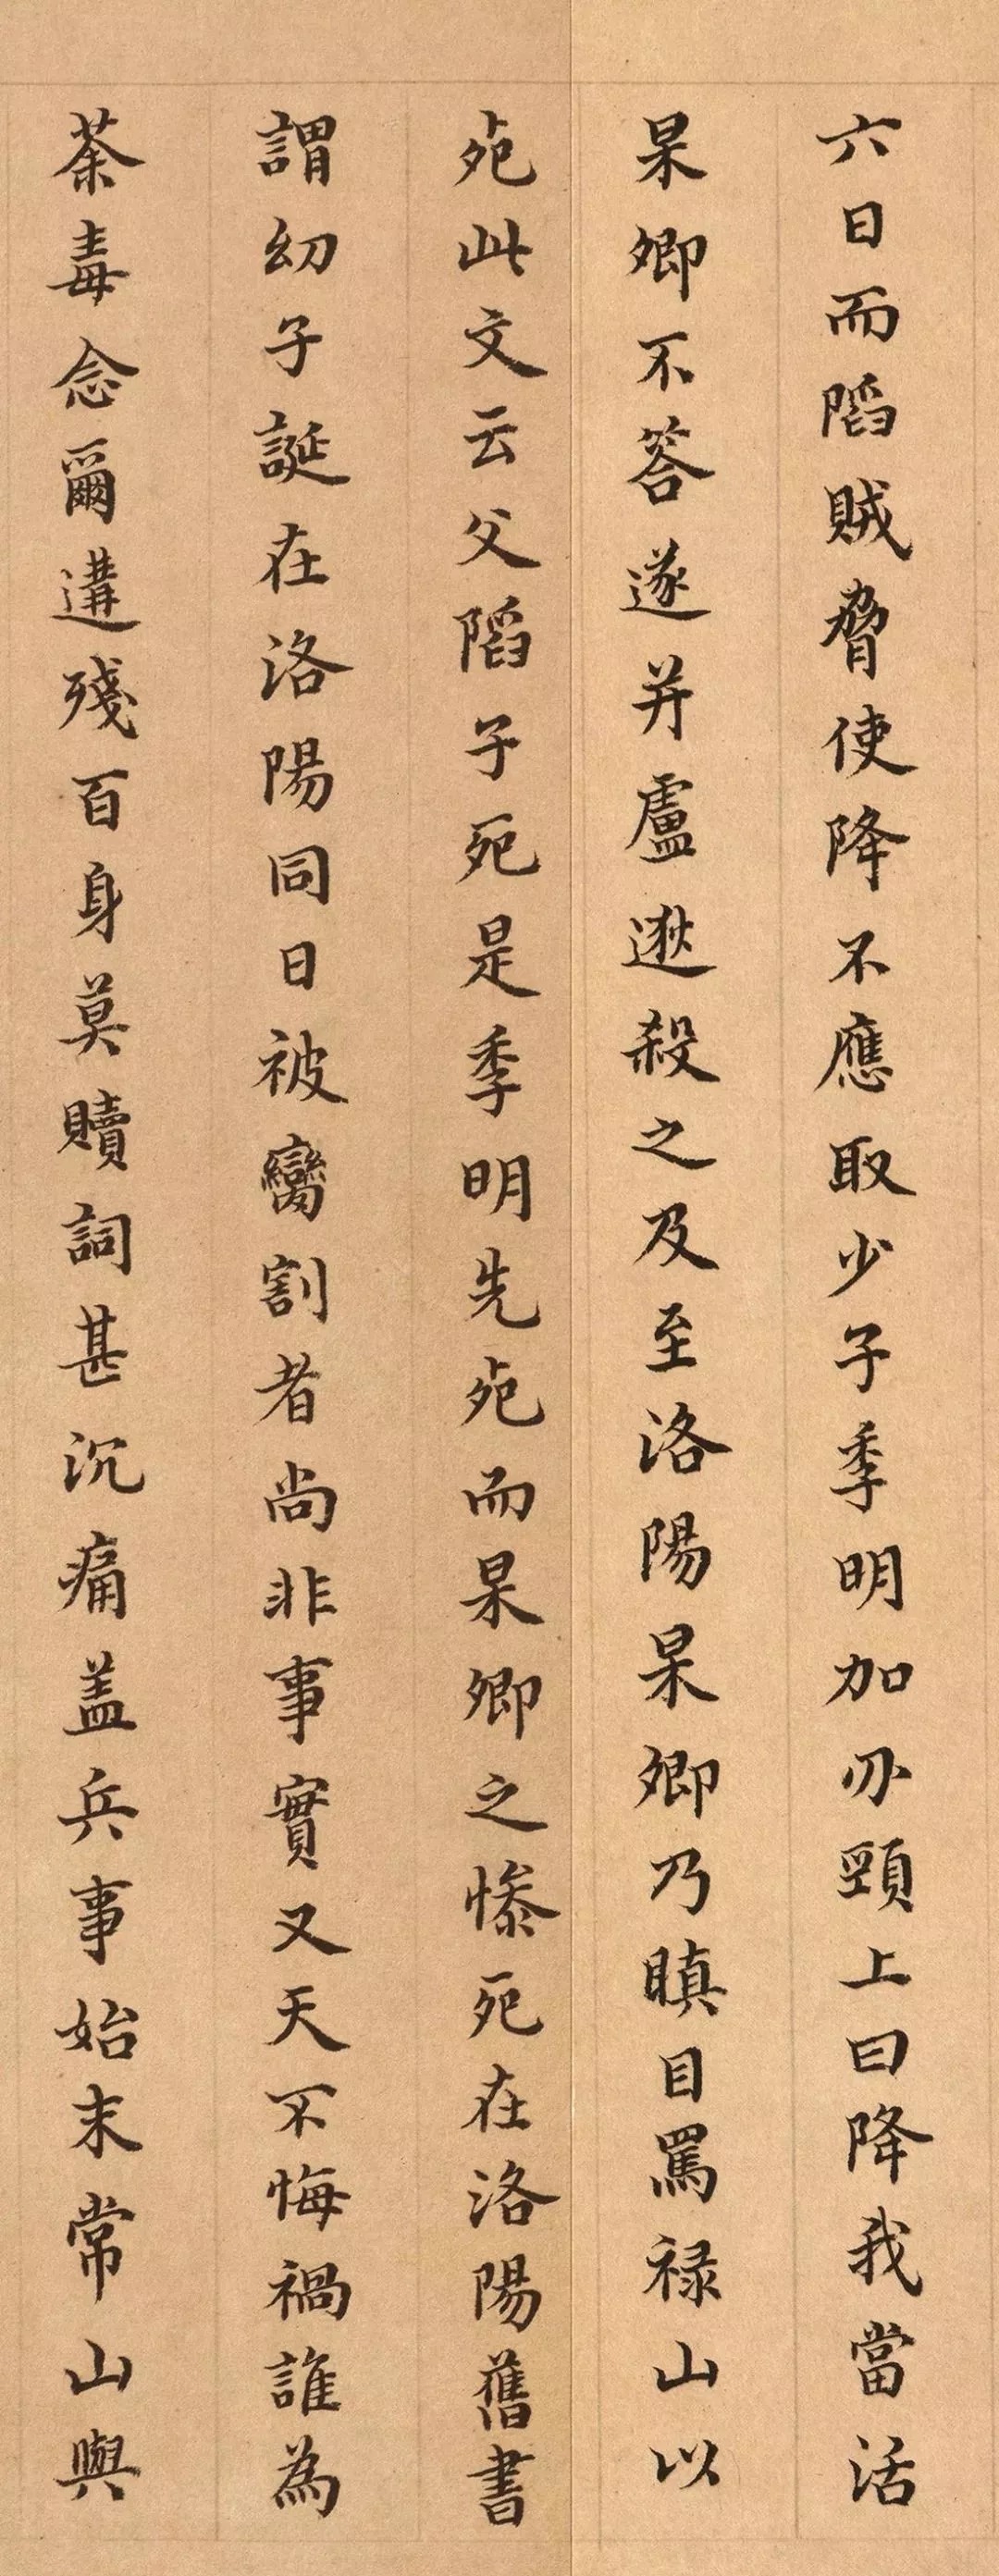 六日而䧟賊脅使降不應取少子季明加刃頸上曰降我當活
杲卿不荅遂并盧逖殺之及至洛陽杲卿乃瞋目罵禄山以
死此文云父䧟子死是季明先死而杲卿之惨死在洛陽舊書
謂幼子誕在洛陽同日被臠割者尚非事實又天不悔禍誰為
荼毒念爾遘殘百身莫贖詞甚沉痛盖兵事始末常山與